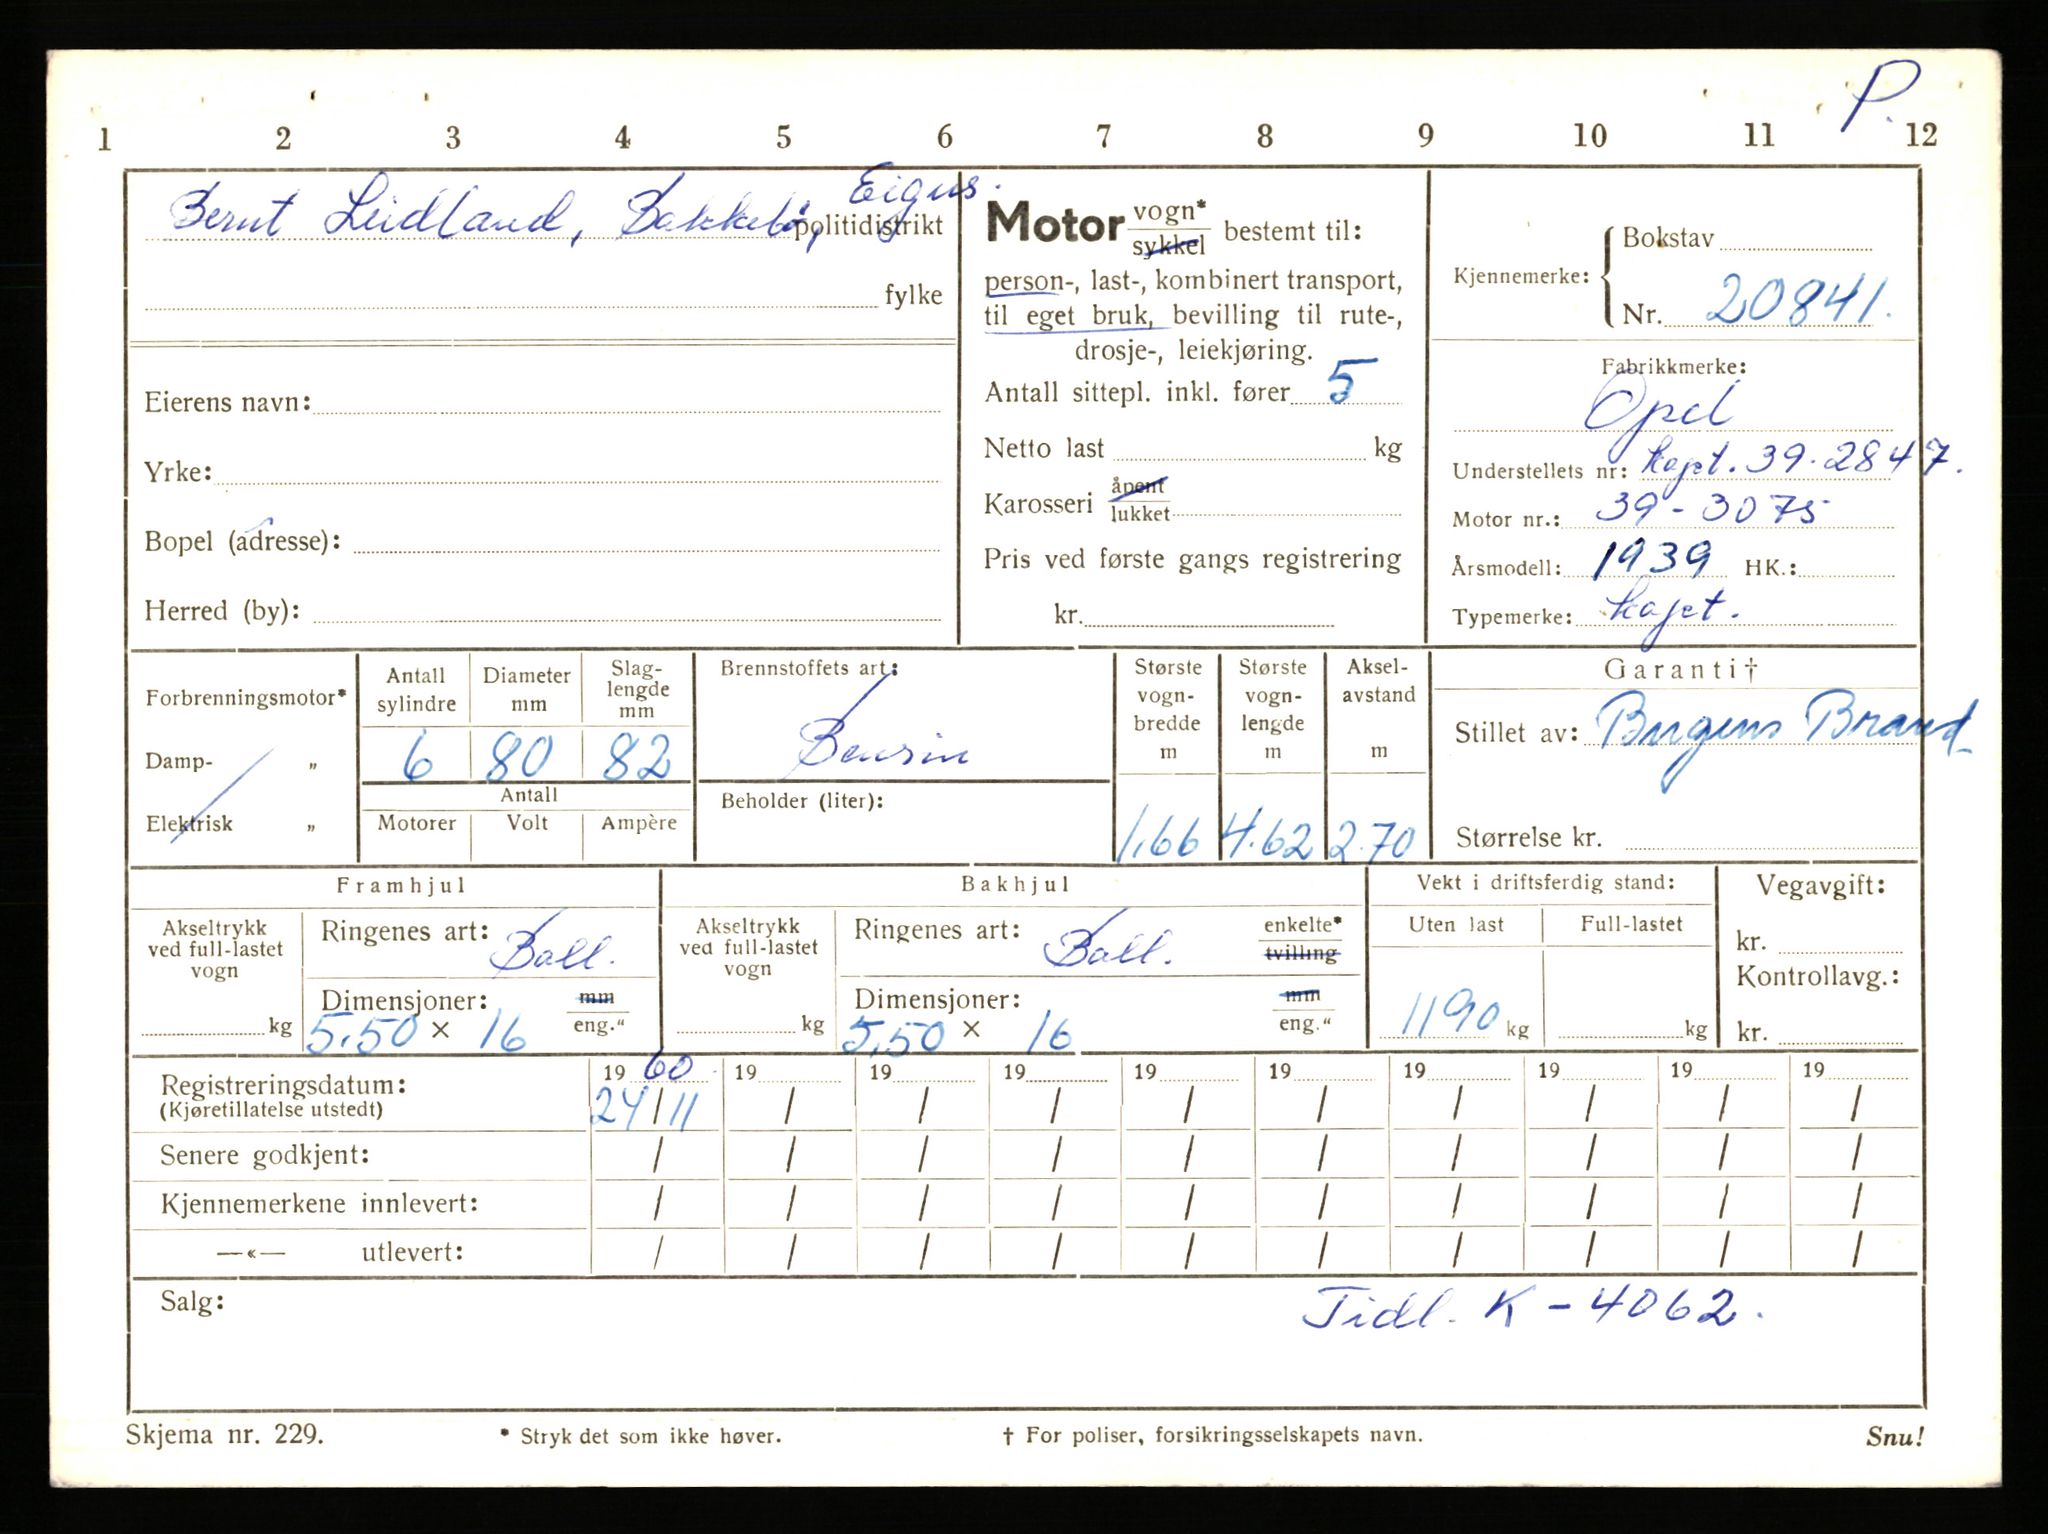 P.
1 2 3 4 5 6 7 8 9 10 11 12
Bernt Leidland, Bakkebø, Eigus. politidistrikt
fylke
Eierens navn:
Yrke:
Bopel (adresse):
Herred (by):
Motor vogn* sykkel bestemt til:
person-, last-, kombinert transport,
til eget bruk, bevilling til rute-,
drosje-, leiekjøring.
Antall sittepl. inkl. fører 5
Netto last kg
Karosseri åpent lukket
Pris ved første gangs registrering
kr.
Kjennemerke: Bokstav
Nr. 20841.
Fabrikkmerke:
Opel
Understellets nr: Kapt. 39-2847.
Motor nr.: 39-3075
Årsmodell: 1939 HK.:
Typemerke: Kapt.
Forbrenningsmotor*
Damp- „
Elektrisk „
Antall sylindre
Diameter mm
Slag-lengde mm
6 80 82
Antall
Motorer Volt Ampère
Brennstoffets art:
Bensin
Beholder (liter):
Største vogn-bredde m
1,66
Største vogn-lengde m
4.62
Aksel-avstand m
2.70
Garanti†
Stillet av: Bergens Brand
Størrelse kr.
Framhjul
Akseltrykk ved full-lastet vogn
kg
Ringenes art: Ball.
Dimensjoner: mm eng."
5,50 × 16
Bakhjul
Akseltrykk ved full-lastet vogn
kg
Ringenes art: Ball. enkelte* tvilling
Dimensjoner: mm eng."
5,50 × 16
Vekt i driftsferdig stand:
Uten last Full-lastet
1190 kg kg
Vegavgift:
kr.
Kontrollavg.:
kr.
Registreringsdatum: 19 60 19 19 19 19 19 19 19 19 19
(Kjøretillatelse utstedt) 24/11 / / / / / / / / /
Senere godkjent: / / / / / / / / / /
Kjennemerkene innlevert: / / / / / / / / / /
—«— utlevert: / / / / / / / / / /
Salg:
Tidl. K-4062.
Skjema nr. 229. * Stryk det som ikke høver. † For poliser, forsikringsselskapets navn. Snu!